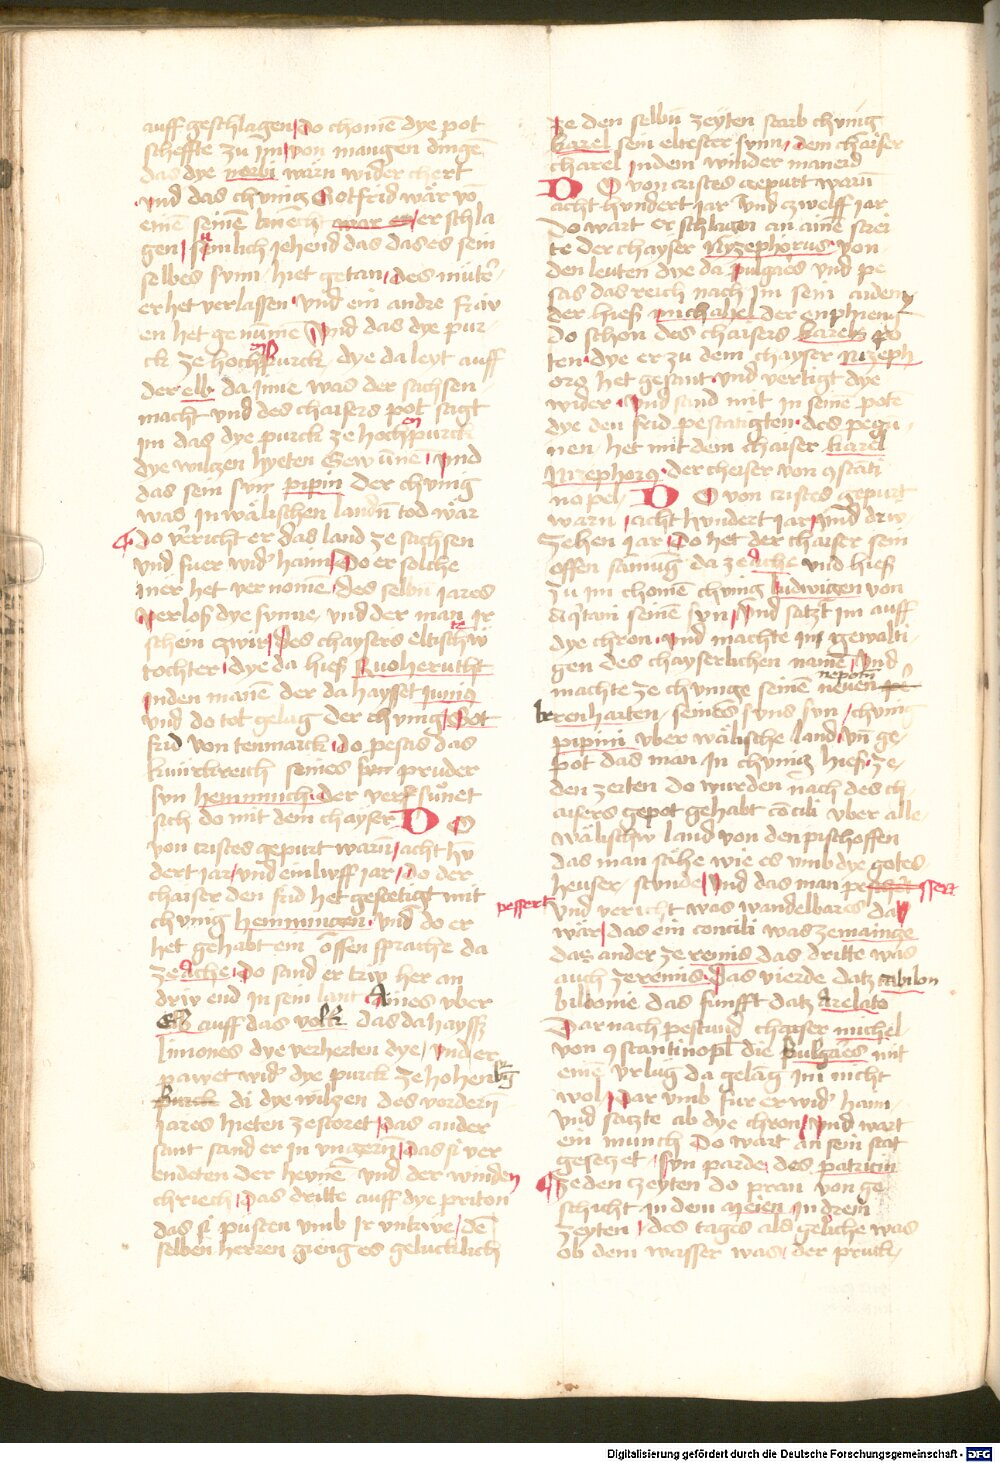 auff geschlagen do chomē dye pot
scheffte zu Im von mangen dingē
das dye norbi wärn wider chert
vnd das chvnig Gotfrid wär vō
einē seinē knecht war er schla
gen sümlich jehend das das es sein
selbes synn hiet getan des mûter
er het verlassen vnd ein andre frāw
en het genūmē Vnd das dye pur
ck ze hochpurck dye da leyt auff
der elb da Inne was der sachsen
macht vnd des chaisers pot sagt
im das dye purck ze hochpurck
dye wilczen hyeten Gewūnē vnd
das sein svn pipin der chvnig
was In wälischen landn̄ tod wär
do vericht er das land ze sachsen
vnd fuer wider haim Do er solche
mer het vernomē des selbn̄ iares
verlos dye synne vnd der man Ir
schein zwir Des chaysers eltischw
tochter dye da hies Ruoheruth
Inden manē der da haysset Iunio
vnd do tot gelag der chvnig Got
frid von tenmarck do pesas das
kunickreich seines svn pruder
svn hemminch der versuͦnet
sich do mit dem chayser DO
von cristes gepurt warn̄ acht hū
dert iar vnd einlyff iar Do der
chaiser den frid het gestetigt mit
chvnig hemmingen vnd do er
het gehabt ein offen sprache da
ze Ache Do sand er drw her an
drw end In sein lant Aines vber
Elb auff das volck das da haysst
limones dye verherten dye vnd er
pawet wider dye purck ze hohen
burg
purck di dye wilzen des vordern̄
iares hieten zestoret Das ander
sant sand er in vngern̄ Das si ver
endeten der heynē vnd der winden
chriech Das dritte auff dye priton
das si pusten vmb Ir vntrwe den
selben herzen gieng es gelucklich
ze den selbn̄ zeyten starb chvnig
karel sein eltester svnn dem chaiser
charel In dem winder manerd
DO von cristes gepurt warn̄
acht hundert iar vnd zwelff iar
Do wart erschlagen an aine strei
te der chayser Nyzephorus von
den leuten dye da pulgäes vnd pe
sas das reich nach Im sein aidem
der hies michahel der enphieng
do schon des chaisers karels po
ten dye er zu dem chayser Nizeph
oro het gesant vnd vertigt dye
wider vnd sand mit in seinē potē
dye den frid pestätigten des pegū
nen het mit dem chaiser karel
Nizephoro der cheiser von 9stāti
nopel DO von cristes gepurt
warn̄ acht hundert iar vnd drw
zehen iar Do het der chaiser sein
offen samnūg da ze Ache vnd hies
zu im chomē chvnig Ludwigen von
aqtani seinē svn vnd satzt Im auff
dye chron vnd machte Im gewalti
gen des chayserlichen namē vnd
nepotn̄
machte ze chvnige seinē neuen
brenharten seines svns svn chvnig
pipini vber wälische land vn̄ ge
pot das man In chvnig hies ze
den zeiten do wurden nach des ch
aisers gepot gehabt cōcili vber alle
wälischw land von den pischoffen
das man sähe wie es vmb dye gotes
heuser stvnde vnd das man
pessert
vnd vericht was wandelbares da
wär das ein concili was ze mainze
daz ander ze remis das dritte was
auch ze remis Das vierde datz cabilon
bilbome das funfft datz Arelato
Dar nach pestund chaiser michel
von 9stantinopl̄ die Bulgäes mit
einē vrlug da gelāg im nicht
wol Dar vmb fur er wider haim
vnd satzte ab dye chron vnd wart
ein munch Do wart an sein stat
gesetzet svn parde des patricin
ze den zeyten do pran von ge
schicht In dem meien In drein
zeyten des tages als geliche was
ob dem wasser was der pruck
Digitalisierung gefördert durch die Deutsche Forschungsgemeinschaft - DFG